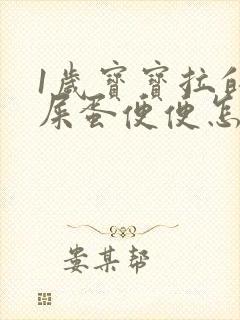 1歲寶寶拉的
屎蛋便便怎
娄某帮